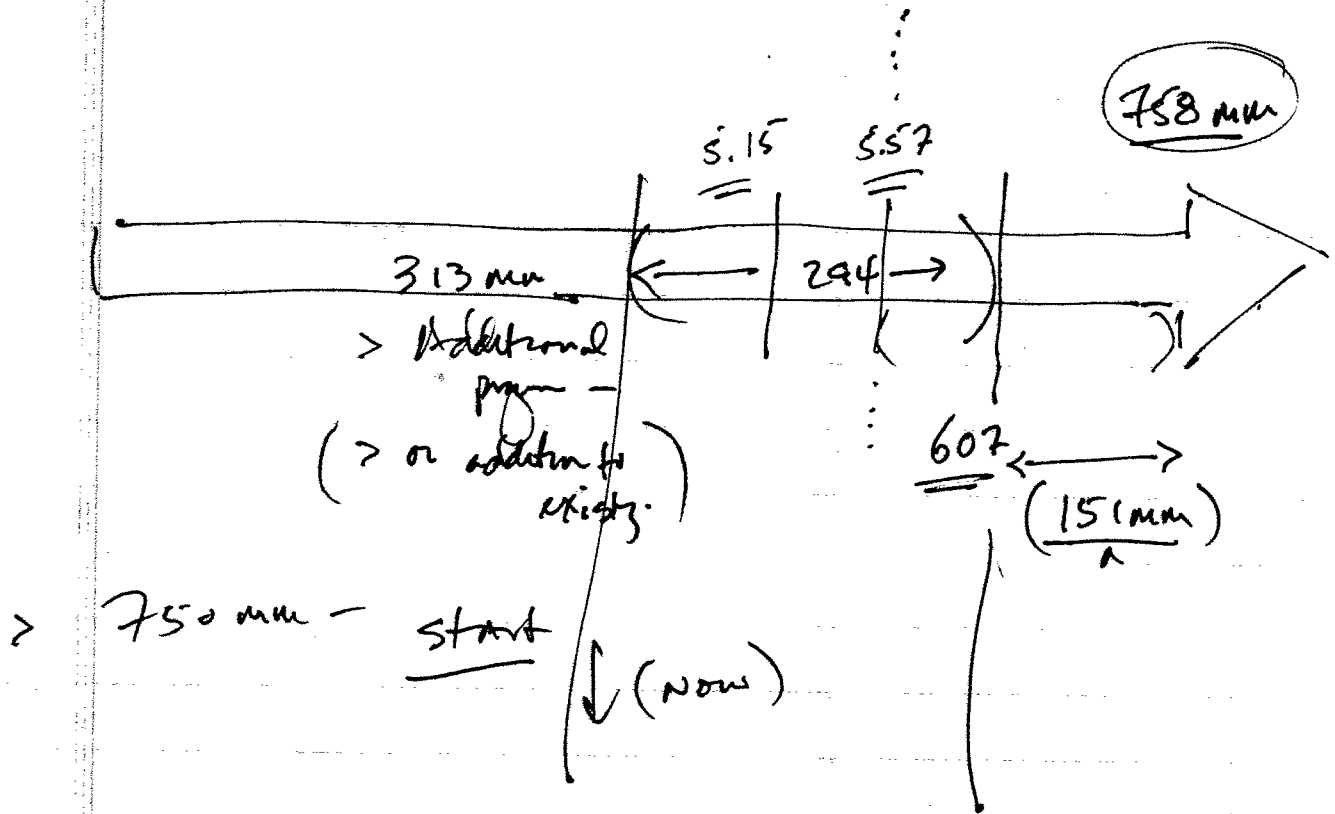 758 mm
5.15 5.57
313 mm 294
> Additional
progm –
(> or addition to
existg.)
607
(151 mm)
> 750 mm – start
(Now)